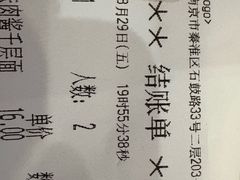 logo>
南京市秦淮区石鼓路33号二层203
★★ 结账单 ★
8月29日(五) 19时55分38秒
人数: 2
单价 数
肉酱千层面 16.00